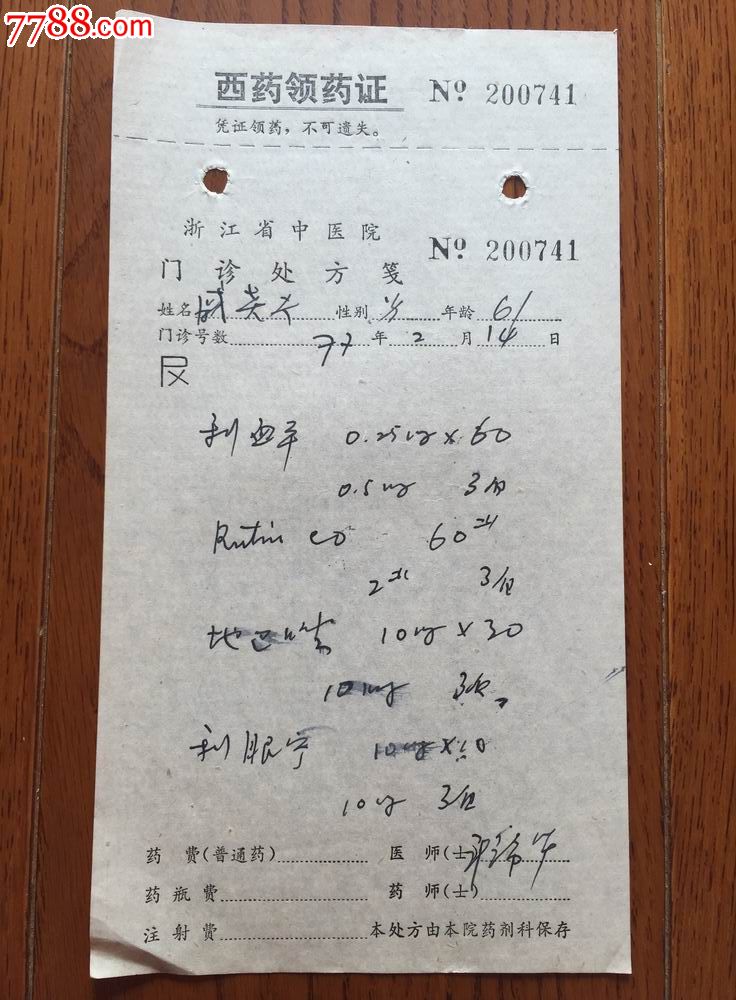 7788.com
西药领药证 Nº 200741
凭证领药，不可遗失。
浙江省中医院
Nº 200741
门诊处方笺
姓名 性别 年龄 61
门诊号数 77年2月14日
利血平 0.25mg×60
0.5mg 3/日
Rutin co 60
2 3/日
地巴唑 10mg×30
10mg 3
利眠宁 10mg×
10mg 3/日
药费(普通药) 医师(士)
药瓶费 药师(士)
注射费 本处方由本院药剂科保存